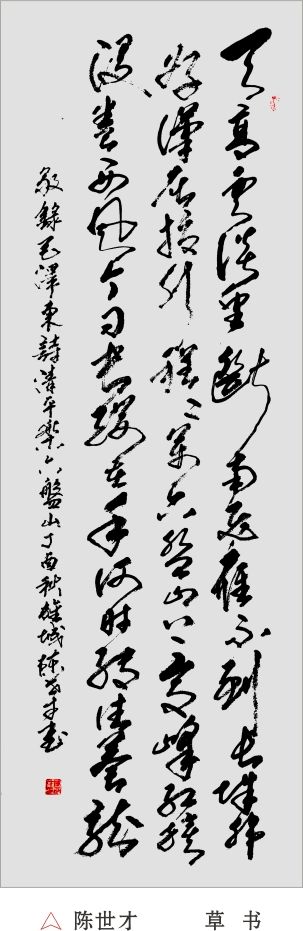 天高雲淡望斷南飛雁不到长城非
好漢屈指行程二萬六盘山上高峰红旗
漫卷西风今日长缨在手何时缚住苍龙
敬錄毛澤東詩清平樂六盤山丁酉秋雄城陈世才书
陈世才 草书